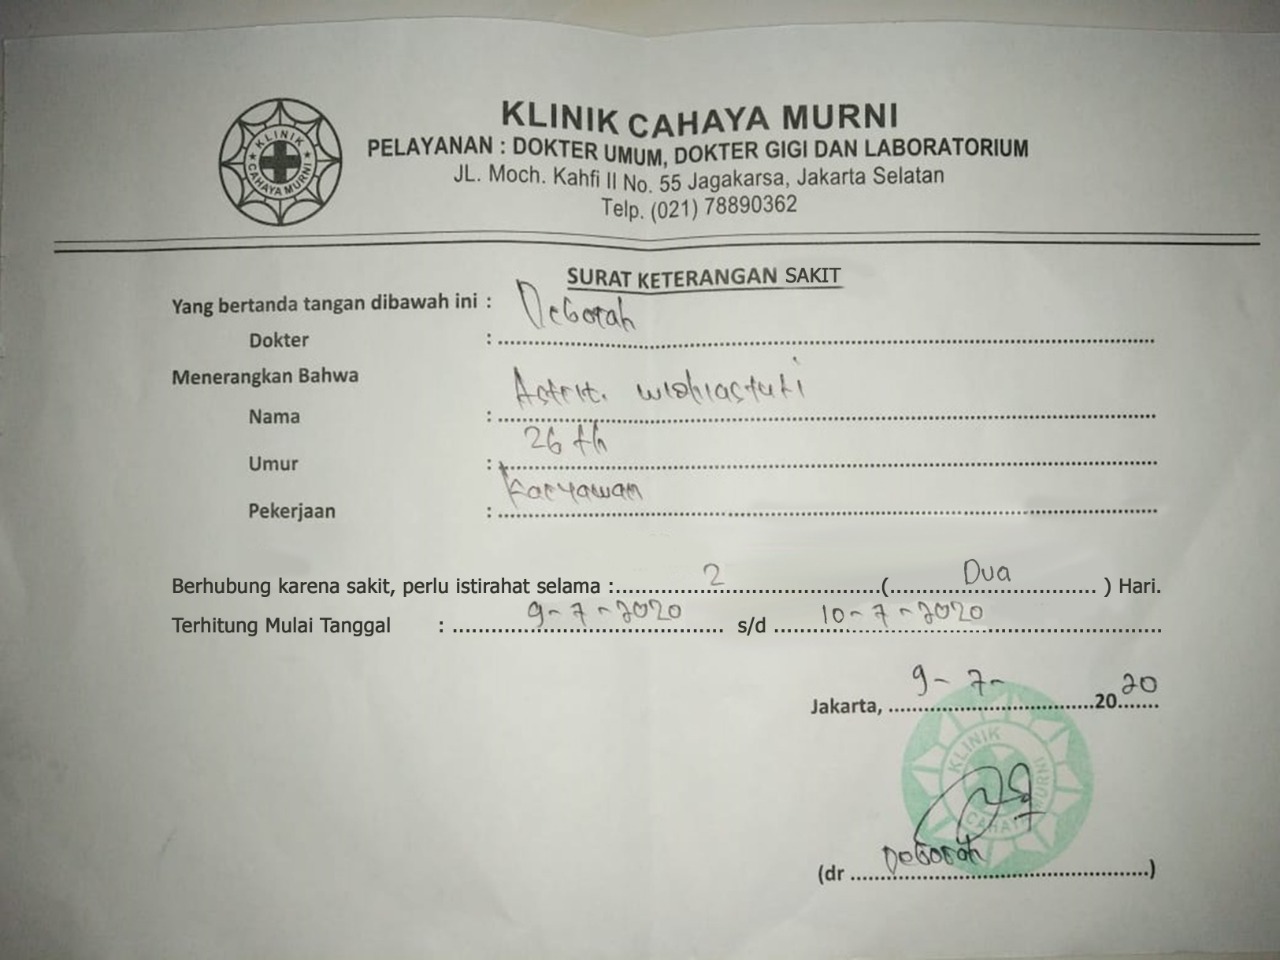 KLINIK CAHAYA MURNI
KLINIK CAHAYA MURNI
PELAYANAN : DOKTER UMUM, DOKTER GIGI DAN LABORATORIUM
JL. Moch. Kahfi II No. 55 Jagakarsa, Jakarta Selatan
Telp. (021) 78890362
SURAT KETERANGAN SAKIT
Yang bertanda tangan dibawah ini :
Dokter : Deborah
Menerangkan Bahwa
Nama : Astrit. widiastuti
Umur : 26 th
Pekerjaan : Karyawan
Berhubung karena sakit, perlu istirahat selama : 2 ( Dua ) Hari.
Terhitung Mulai Tanggal : 9-7-2020 s/d 10-7-2020
Jakarta, 9-7-2020
KLINIK CAHAYA MURNI
(dr Deborah )